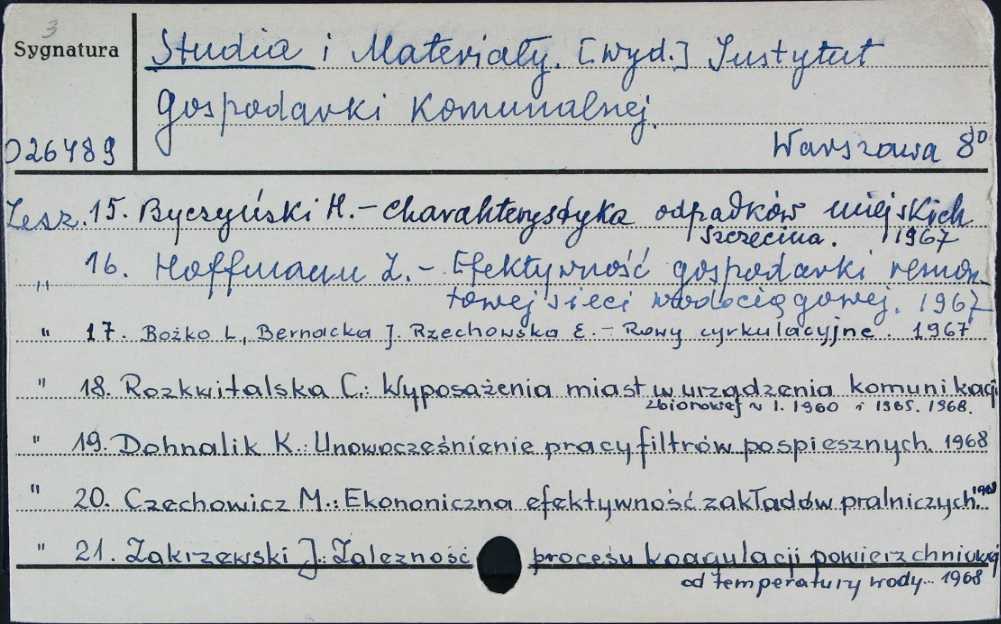 3
Sygnatura
Studia i Materiały. [wyd.] Instytut
Gospodarki Komunalnej.
026489
Warszawa 8°
Zesz. 15. Byczyński H. - Charakterystyka odpadków miejskich
Szczecina. 1967
" 16. Hoffmann Z. - Efektywność gospodarki remon-
towej sieci wodociągowej. 1967
" 17. Bożko L, Bernacka J. Rzechowska E. - Rowy cyrkulacyjne. 1967
" 18. Rozkwitalska C.: Wyposażenia miast w urządzenia komunikacji
zbiorowej w l. 1960 i 1965. 1968.
" 19. Dohnalik K.: Unowocześnienie pracy filtrów pospiesznych. 1968
" 20. Czechowicz M.: Ekononiczna efektywność zakładów pralniczych. 1968
" 21. Zakrzewski J.: Zalezność procesu koagulacji powierzchniowej
od temperatury wody. 1968